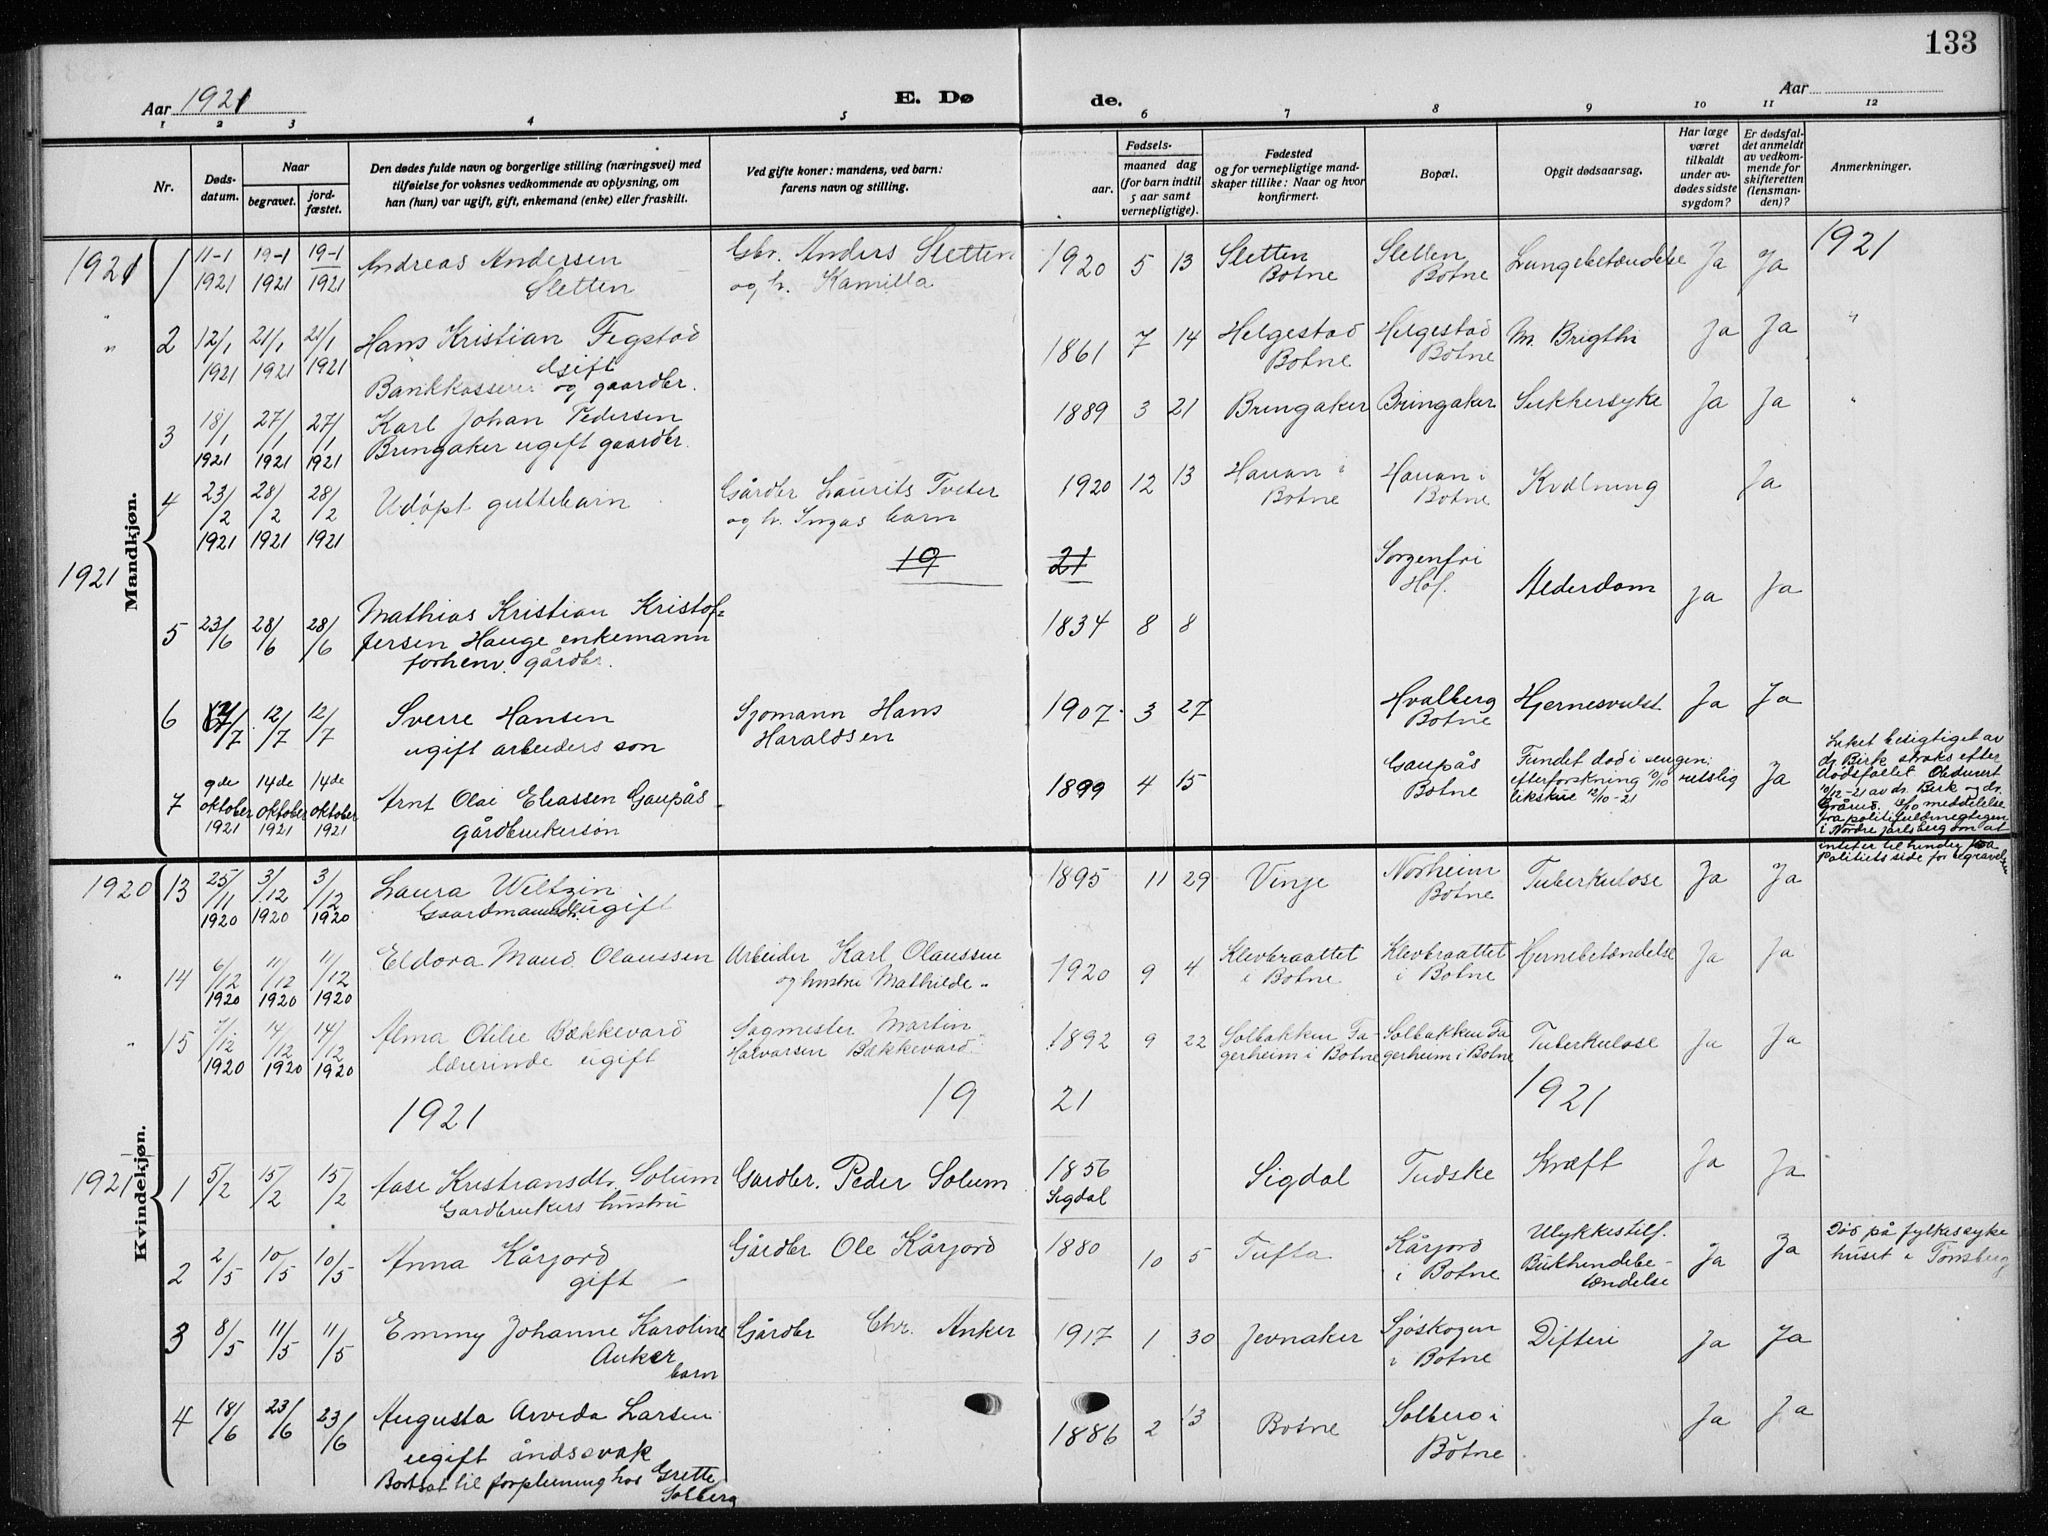 133
Aar 1921
E. Dø
de.
Aar
1 2 3 4 5 6 7 8 9 10 11 12
Nr.
Døds-
datum.
Naar
begravet.
jord-
fæstet.
Den dødes fulde navn og borgerlige stilling (næringsvei) med
tilføielse for voksnes vedkommende av oplysning, om
han (hun) var ugift, gift, enkemand (enke) eller fraskilt.
Ved gifte koner: mandens, ved barn:
farens navn og stilling.
Fødsels-
aar.
maaned dag
(for barn indtil
5 aar samt
vernepligtige).
Fødested
og for vernepligtige mand-
skaper tillike: Naar og hvor
konfirmert.
Bopæl.
Opgit dødsaarsag.
Har læge
været
tilkaldt
under av-
dødes sidste
sygdom?
Er dødsfal-
det anmeldt
av vedkom-
mende for
skifteretten
(lensman-
den)?
Anmerkninger.
Mandkjøn.
1921 1 11-1 1921 19-1 1921 19-1 1921
Andreas Andersen
Sletten
Gbr. Anders Sletten
og h. Kamilla
1920 5 13
Sletten
Botne
Sletten
Botne
Lungebetændelse Ja Ja 1921
" 2 12/1 1921 21/1 1921 21/1 1921
Hans Kristian Fegstad
Gift
Bankkasserer og gaardbr.
1861 7 14
Helgestad
Botne
Helgestad
Botne
M. Brigthi Ja Ja "
3 18/1 1921 27/1 1921 27/1 1921
Karl Johan Pedersen
Bringaker ugift gaardbr.
1889 3 21 Bringaker Bringaker Sukkersyke Ja Ja "
4 23/2 1921 28/2 1921 28/2 1921
Udøpt guttebarn
Gårdbr Laurits Tveter
og h. Ingas barn
1920 12 13
Hauan i
Botne
Hauan i
Botne
Kvælning Ja
19 21
1921 5 23/6 28/6 28/6
Mathias Kristian Kristof-
fersen Hauge enkemann
forhenv. gårdbr.
1834 8 8
Sorgenfri
Hof.
Alderdom Ja Ja
6 7/7 12/7 12/7
Sverre Hansen
ugift arbeiders son
Sjomann Hans
Haraldsen
1907 3 27
Hvalberg
Botne
Hjernesvulst Ja Ja
7 9de oktober 1921 14de oktober 1921 14de oktober 1921
Arnt Olai Eliassen Gaupås
gårdbrukersøn
1899 4 15
Gaupås
Botne
Fundet død i sengen;
efterforskning 10/10 retslig
likskue 12/10-21
Ja
Liket besigtiget av
dr. Birk straks efter
dødsfallet Obducert
10/12-21 av dr. Birk og dr.
Grårud. 12/10 meddelelse
fra politifuldmegtigen
i Nordre Jarlsberg om at
intet er til hinder fra
Politiets side for begravelsen
Kvindekjøn.
1920 13 25/11 1920 3/12 1920 3/12 1920
Laura Weltzin
Gaardmannsdtr. ugift
1895 11 29 Vinje
Norheim
Botne
Tuberkulose Ja Ja
" 14 6/12 1920 11/12 1920 11/12 1920
Eldora Maud Olaussen
Arbeider Karl Olaussen
og hustru Mathilde "
1920 9 4
Klevbraattet
i Botne
Klevbraattet
i Botne
Hjernebetændelse Ja Ja
" 15 7/12 1920 14/12 1920 14/12 1920
Alma Otilie Bækkevard
lærerinde ugift
Sagmester Martin
Halvorsen Bækkevard.
1892 9 22
Solbakken Fa-
gerheim i Botne
Solbakken Fa-
gerheim i Botne
Tuberkulose Ja Ja
1921 19 21 1921
1921 1 5/2 15/2 15/2
Aase Kristiansdtr. Solum
Gardbrukers hustru
Gardbr. Peder Solum
1856
Sigdal
Sigdal Tudske Kræft Ja Ja
2 2/5 10/5 10/5
Anna Kårjord
gift
Gårdbr Ole Kårjord
1880 10 5 Tufta
Kårjord
i Botne
Ulykkestilf.
Bukhindebe-
tændelse
Ja Ja
Død på fylkessyke
huset i Tønsberg
3 8/5 11/5 11/5
Emmy Johanne Karoline
Anker
barn
Gårdbr Chr. Anker
1917 1 30 Jevnaker
Sjöskogen
i Botne
Difteri Ja Ja
4 18/6 23/6 23/6
Augusta Arvida Larsen
ugift åndssvak
Bortsat til forpleining hos Grette
Solberg
1886 2 13 Botne
Solberg i
Botne
Ja Ja